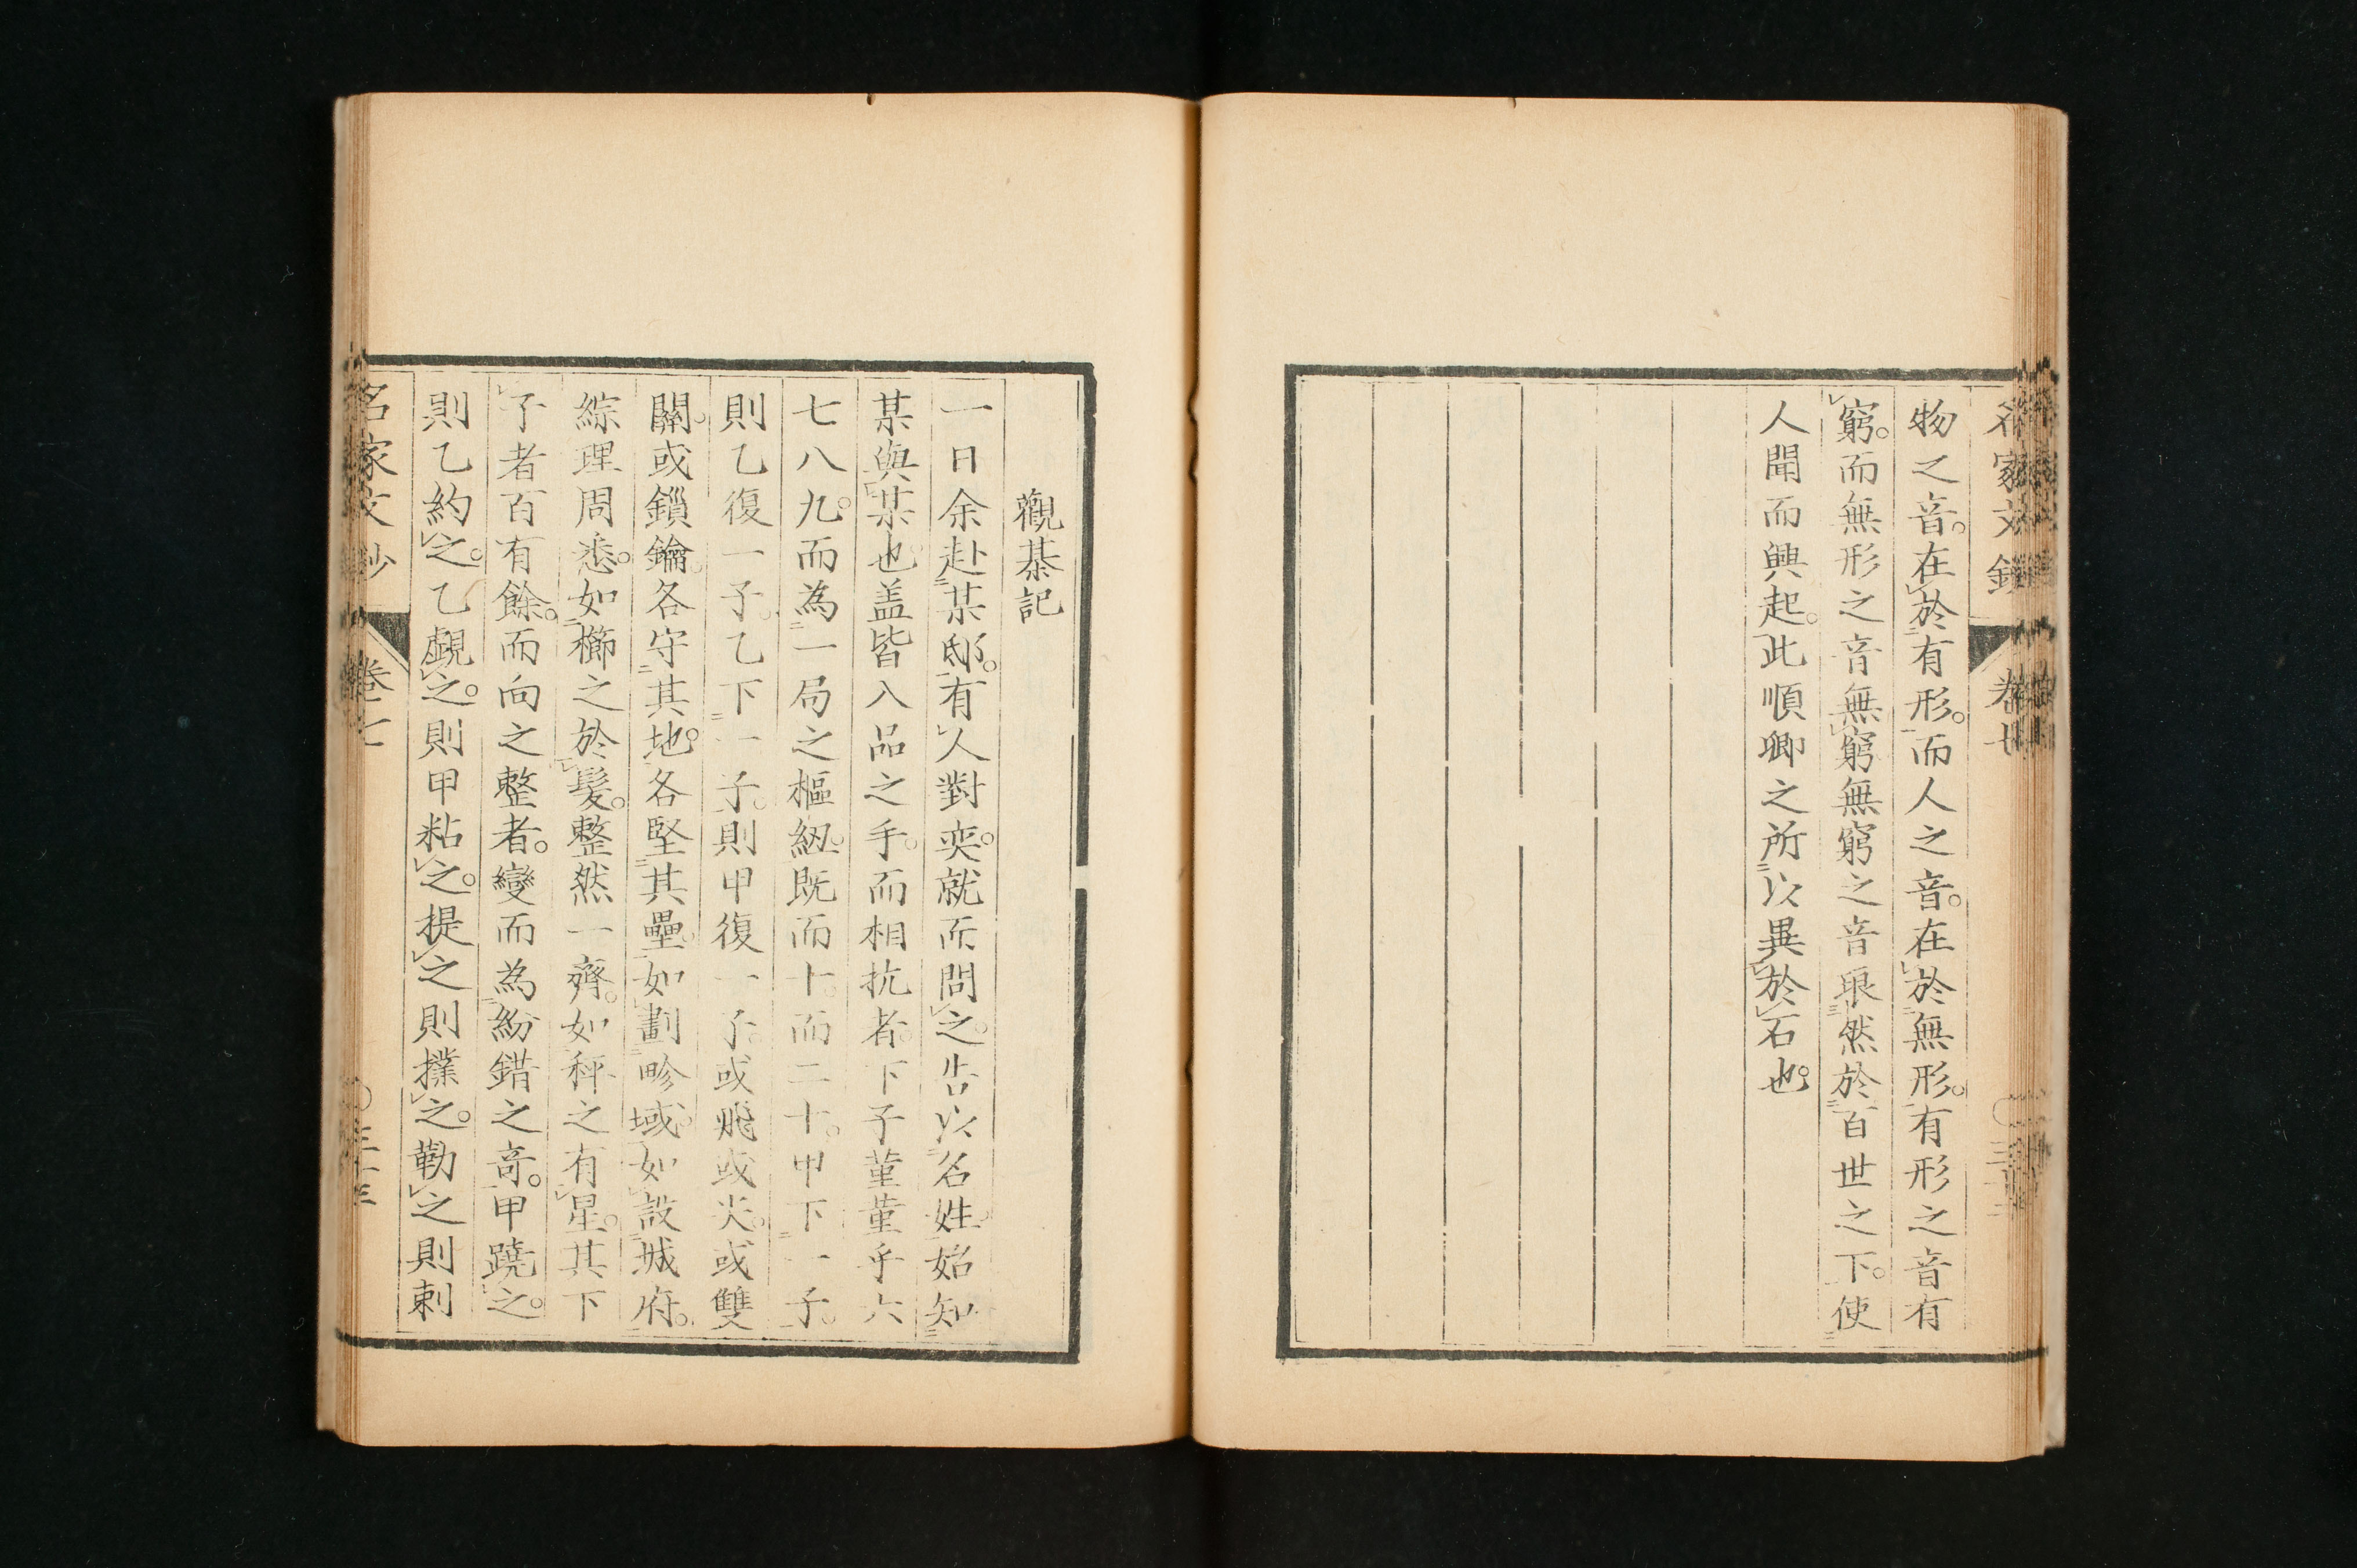 物之音。在於有形。而人之音。在於無形。有形之音有
窮。而無形之音無窮無窮之音琅然於百世之下。使
人聞而興起。此順卿之所以異於石也。
觀棊記
一日余赴某邸。有人對奕。就而問之。告以名姓。始知
某與某也蓋皆入品之手。而相抗者。下子菫菫乎六
七八九。而為一局之樞紐。既而十。而二十。甲下一子。
則乙復一子。乙下一子。則甲復一子。或飛或尖。或雙
關。或鎻鑰。各守其地。各堅其壘。如劃畛域。如設城府。
綜理周悉。如櫛之於髮。整然一齊。如秤之有星。其下
子者百有餘。而向之整者。變而為紛錯之奇。甲蹺之。
則乙約之。乙覷之。則甲粘之。提之則撲之。勒之則剌
名家文鈔 卷七 三十三